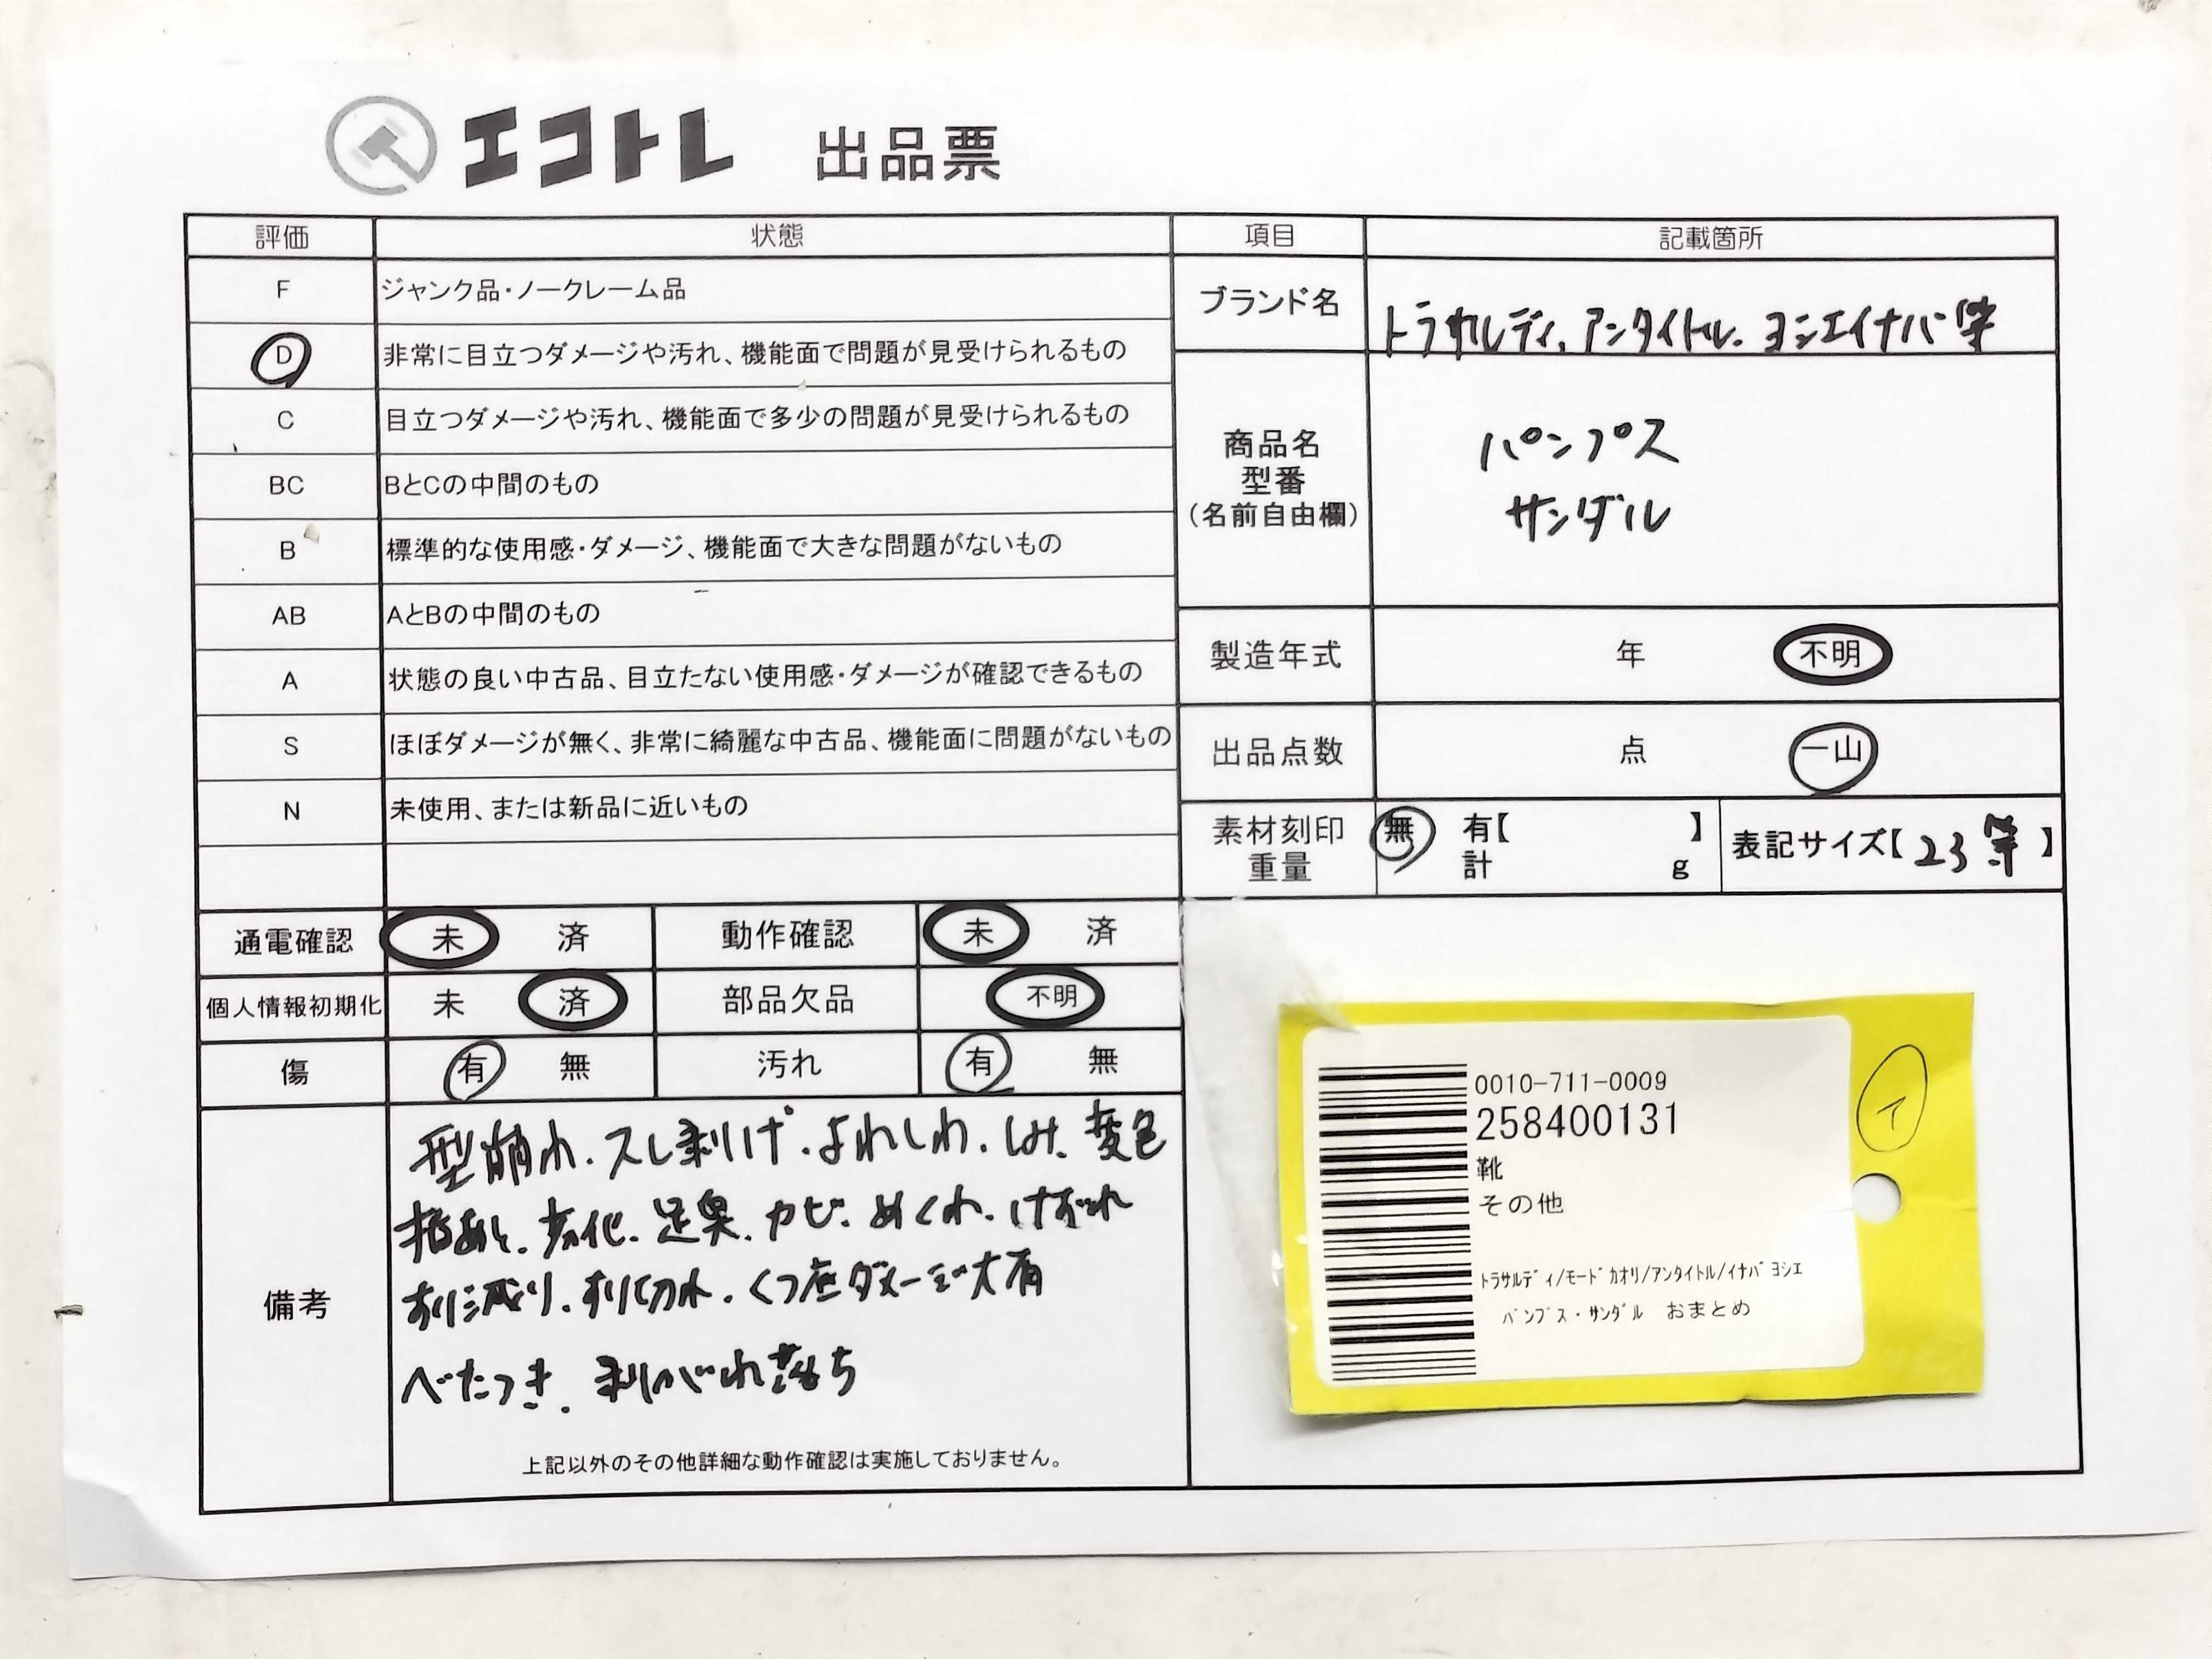 エコトレ 出品票
評価 状態
F ジャンク品・ノークレーム品
D 非常に目立つダメージや汚れ、機能面で問題が見受けられるもの
C 目立つダメージや汚れ、機能面で多少の問題が見受けられるもの
BC BとCの中間のもの
B 標準的な使用感・ダメージ、機能面で大きな問題がないもの
AB AとBの中間のもの
A 状態の良い中古品、目立たない使用感・ダメージが確認できるもの
S ほぼダメージが無く、非常に綺麗な中古品、機能面に問題がないもの
N 未使用、または新品に近いもの
項目 記載箇所
ブランド名 トラサルディ、アンタイトル、ヨシエイナバ等
商品名
型番
(名前自由欄)
パンプス
サンダル
製造年式 年 不明
出品点数 点 一山
素材刻印 無 有【 】
重量 計 g
表記サイズ【23等】
通電確認 未 済 動作確認 未 済
個人情報初期化 未 済 部品欠品 不明
傷 有 無 汚れ 有 無
備考
型崩れ、スレ剥げ、よれしわ、しみ、変色
指あと、劣化、足臭、カビ、めくれ、けずれ
すり減り、すり切れ、くつ底ダメージ大有
べたつき、剥がれ落ち
上記以外のその他詳細な動作確認は実施しておりません。
0010-711-0009
258400131
靴
その他
トラサルディ/モードカオリ/アンタイトル/イナバヨシエ
パンプス・サンダル おまとめ
イ